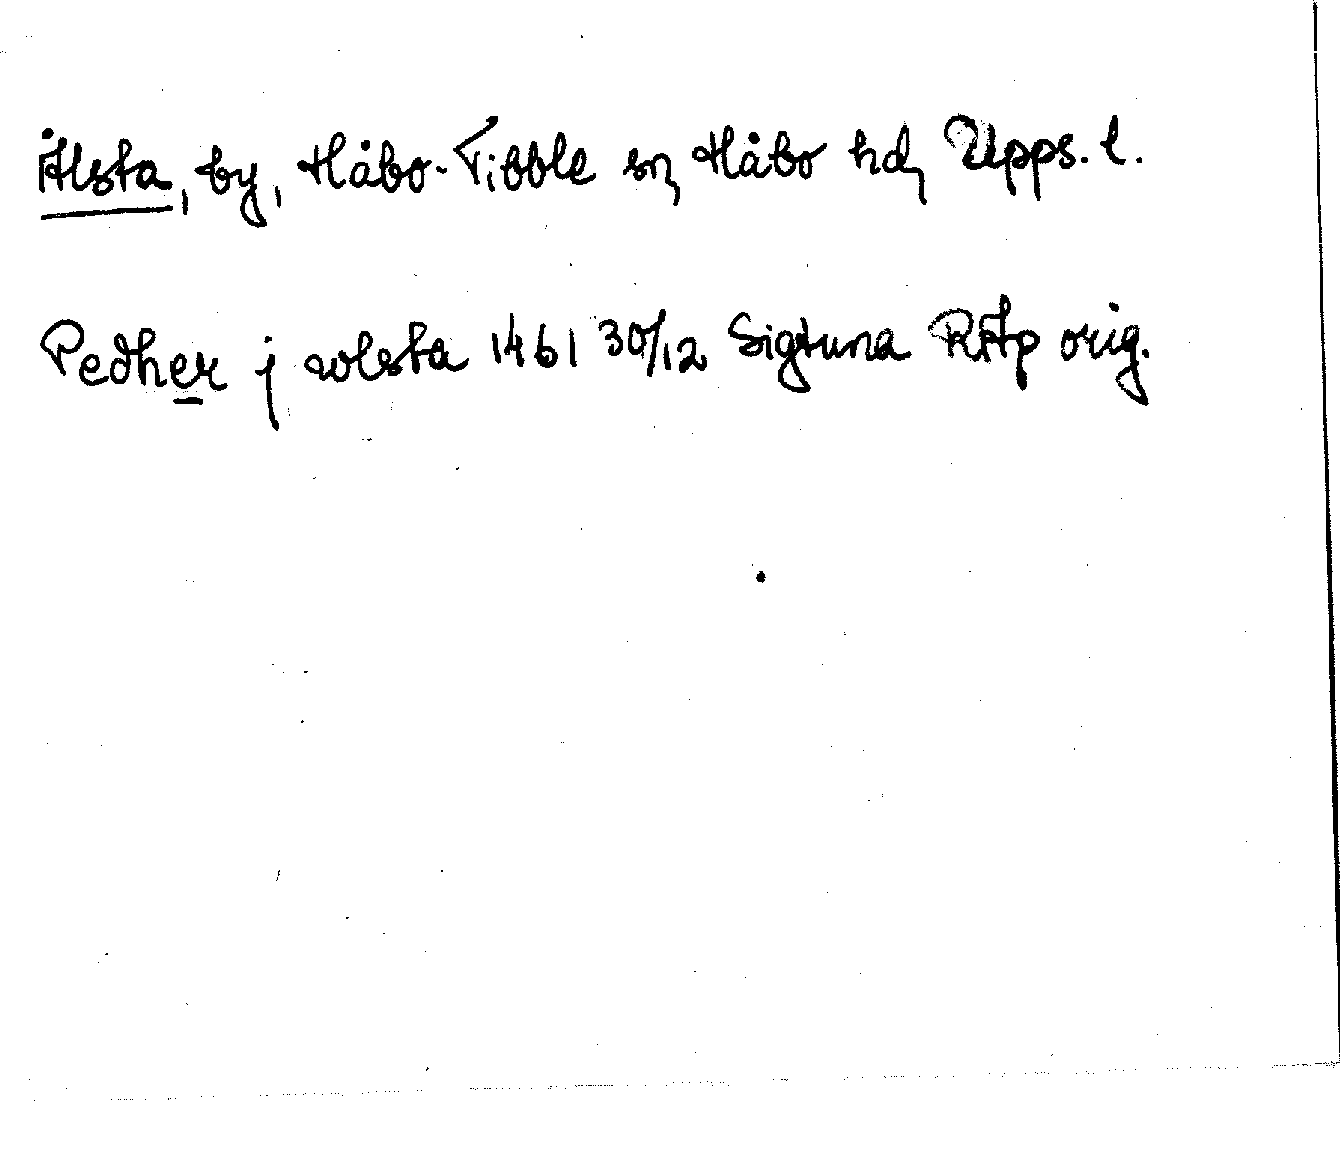 Ålsta, by, Håbo-Tibble sn, Håbo hd, Upps. l.
Pedher j wlsta 1461 30/12 Sigtuna RAp orig.